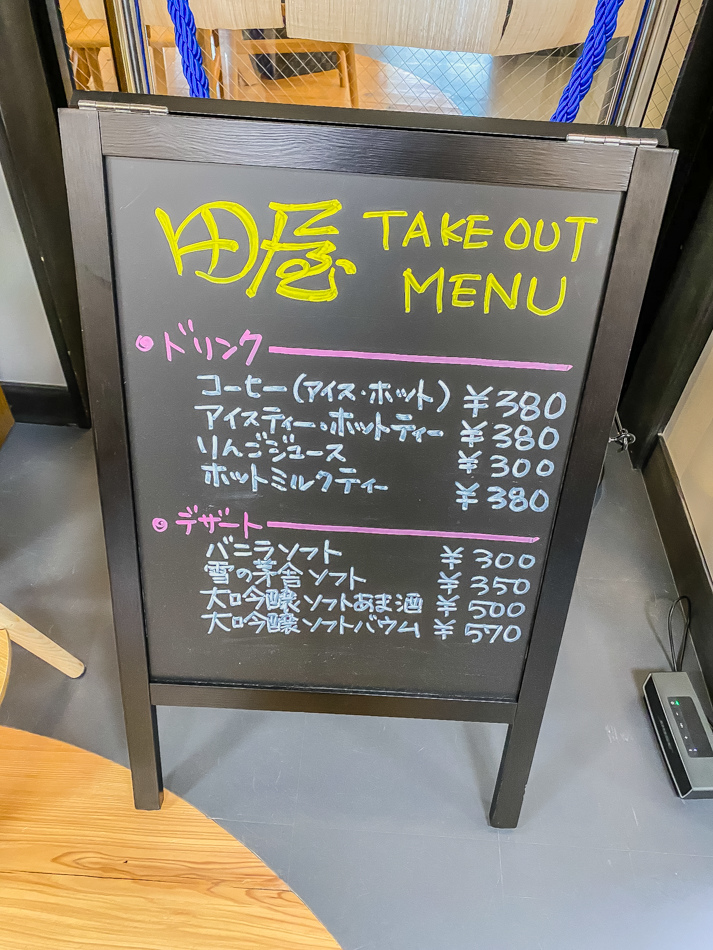 田屋 TAKE OUT
MENU
ドリンク
コーヒー(アイス・ホット) ¥380
アイスティー・ホットティー ¥380
りんごジュース ¥300
ホットミルクティー ¥380
デザート
バニラソフト ¥300
雪の茅舎ソフト ¥350
大吟醸ソフトあま酒 ¥500
大吟醸ソフトバウム ¥570